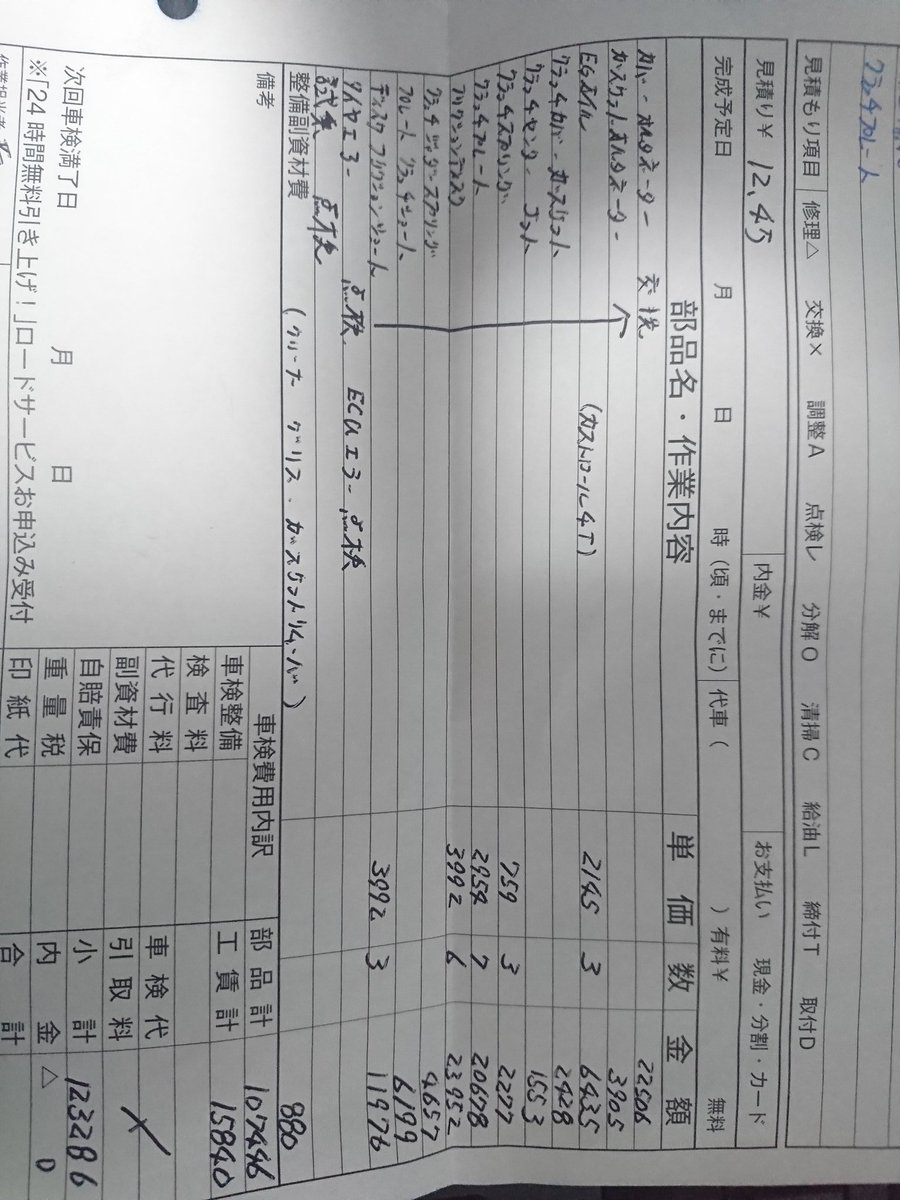 クラッチプレート
見積もり項目 修理△ 交換× 調整A 点検レ 分解O 清掃C 給油L 締付T 取付D
見積り¥ 12,4 内金¥ お支払い 現金・分割・カード
完成予定日 月 日 時(頃・までに) 代車( )有料¥ 無料
部品名・作業内容 単価 数 金額
カバー オルタネーター 交換 22506
ガスケットオルタネーター 3905
EGオイル (カストロール4T) 2145 3 6435
クラッチカバー ガスケット 2428
クラッチセンターナット 1553
クラッチスプリング 759 3 2277
クラッチプレート 2954 7 20678
フリクションディスク 3992 6 23952
クラッチジャダースプリング 4657
プレート クラッチシュート 6199
ディスク フリクションシュート 3992 3 11976
タイヤエアー 点検 ECUエラー点検
試乗 点検
整備副資材費 (クリーナ グリス ガスケットリムーバ) 880
備考
次回車検満了日 月 日
※「24時間無料引き上げ!」ロードサービスお申込み受付
車検費用内訳 部品計 107446
車検整備 工賃計 15840
検査料
代行料 車検代
副資材費 引取料 ×
自賠責保 小計 123286
重量税 内金 △ 0
印紙代 合計